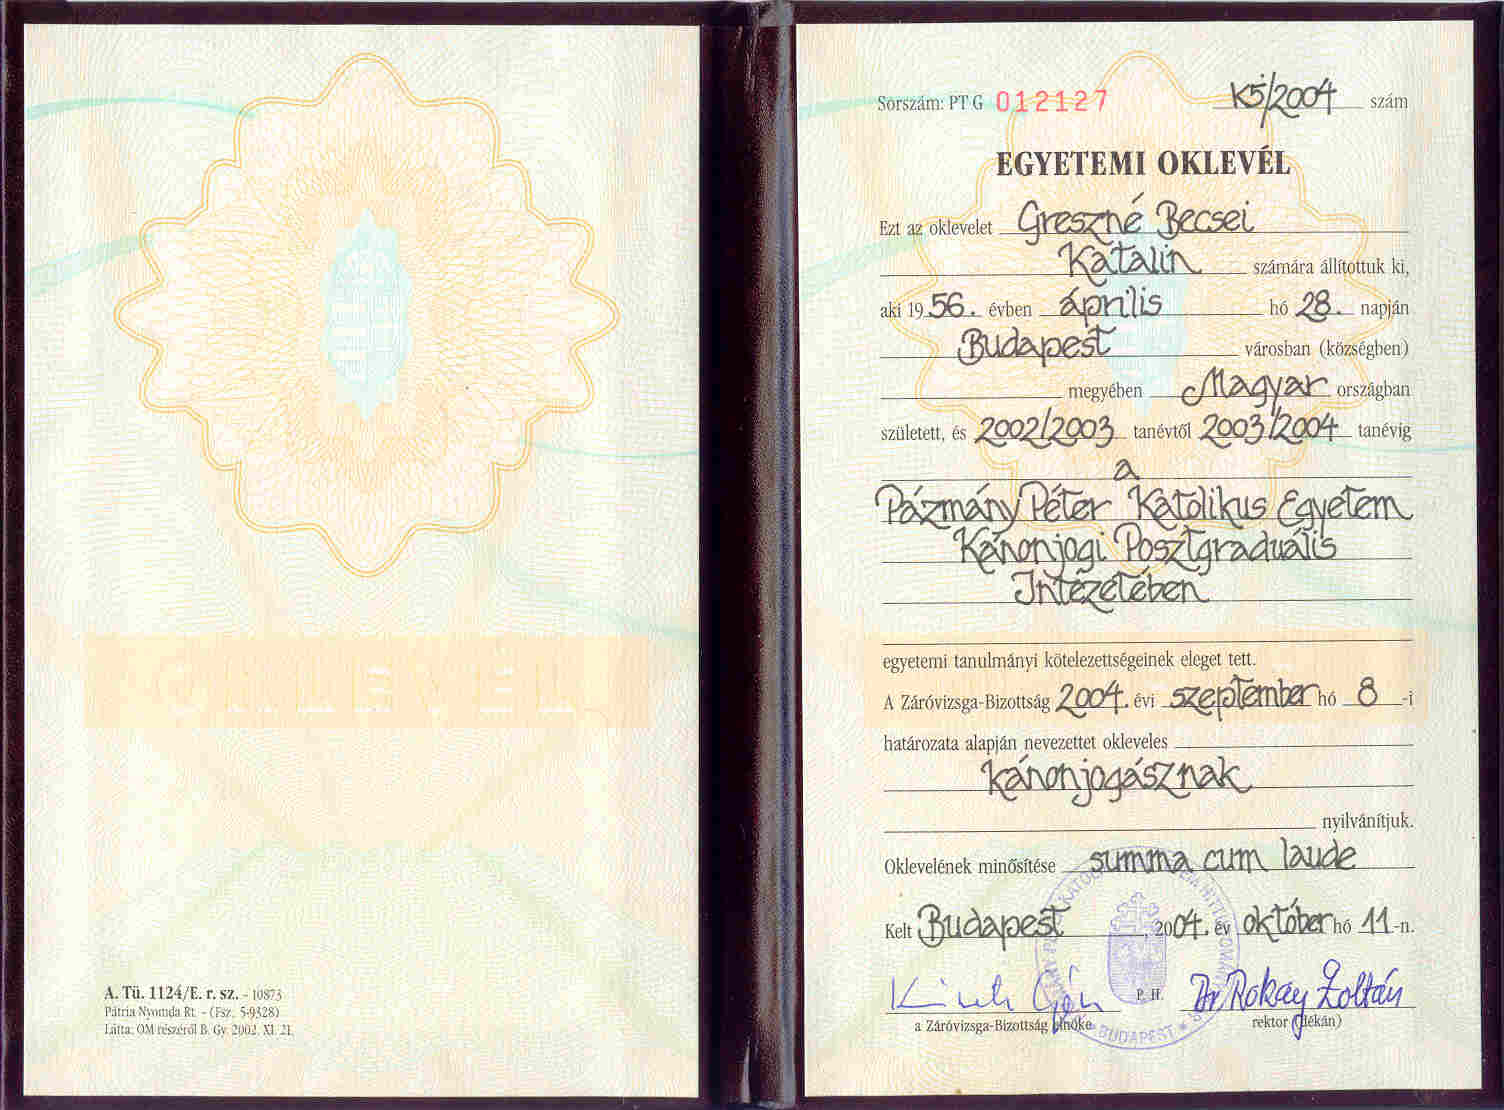 OKLEVÉL
A. Tü. 1124/E. r. sz. - 10873
Pátria Nyomda Rt. - (Fsz. 5-9328)
Látta: OM részéről B. Gy. 2002. XI. 21.
Sorszám: PT G 012127 K5/2004 szám
EGYETEMI OKLEVÉL
Ezt az oklevelet Greszné Becsei
Katalin számára állítottuk ki,
aki 1956. évben április hó 28. napján
Budapest városban (községben)
megyében Magyar országban
született, és 2002/2003 tanévtől 2003/2004 tanévig
a
Pázmány Péter Katolikus Egyetem
Kánonjogi Posztgraduális
Intézetében
egyetemi tanulmányi kötelezettségeinek eleget tett.
A Záróvizsga-Bizottság 2004. évi szeptember hó 8-i
határozata alapján nevezettet okleveles
kánonjogásznak
nyilvánítjuk.
Oklevelének minősítése summa cum laude
Kelt Budapest, 2004. év október hó 11-n.
P. H. Dr Rokay Zoltán
a Záróvizsga-Bizottság elnöke rektor (dékán)
BUDAPEST